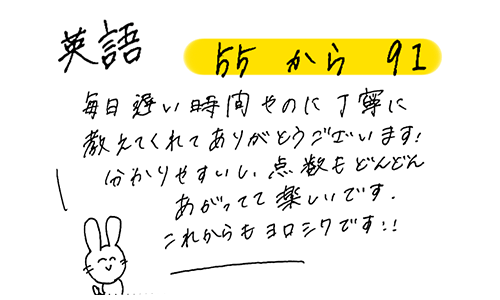 英語 55 から 91
毎日遅い時間やのに丁寧に
教えてくれてありがとうございます!
分かりやすいし、点数もどんどん
あがってて楽しいです.
これからもヨロシクです!!